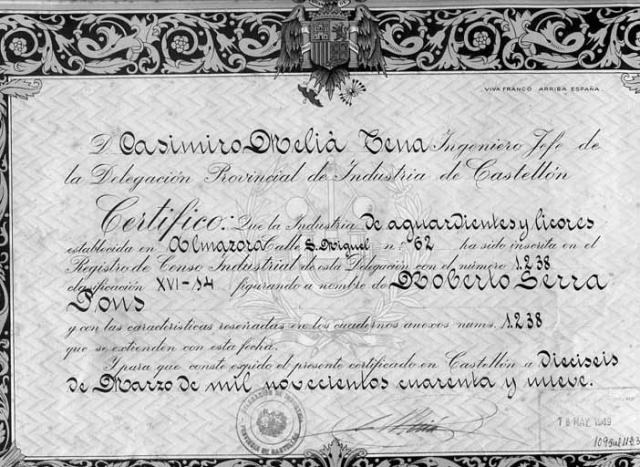 VIVA FRANCO ARRIBA ESPAÑA
D. Casimiro Meliá Tena Ingeniero Jefe de
la Delegación Provincial de Industria de Castellón
Certifico: Que la Industria de aguardientes y licores
establecida en Almazora Calle S. Miguel n.º 62 ha sido inscrita en el
Registro de Censo Industrial de esta Delegación con el número 1.238
clasificación XVI-14 figurando a nombre de Roberto Serra
Pons
y con las características reseñadas en los cuadernos anexos nums. 1.238
que se extienden con esta fecha.
I para que conste expido el presente certificado en Castellón a Dieciseis
de Marzo de mil novecientos cuarenta y nueve.
MAY. 1949